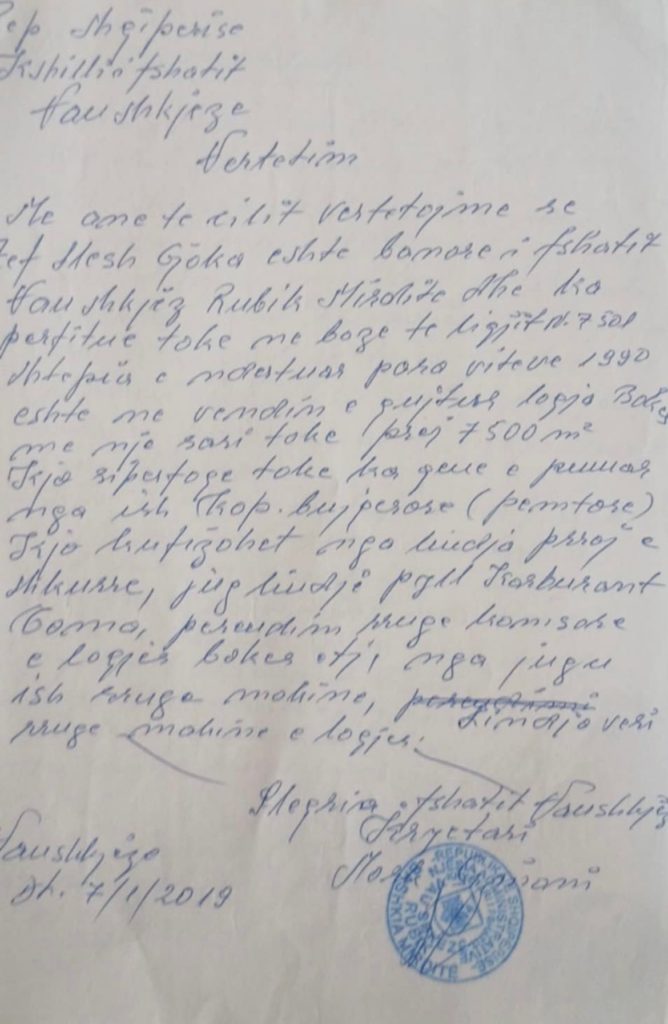 ep Shqiperise
Kshillii fshatit
Vau shkjeze
Vertetim
Me ane te cilit vertetojme se
Zef Mesh Gjoka eshte banore i fshatit
Vau shkjëz Rubik Mirdite dhe ka
perfitue toke ne baze te ligjit Nr. 7501
shtepia e ndertuar para viteve 1990
eshte ne vendin e qujtur logja Bokes
me nje sasi toke prej 7500 m²
Kjo siperfaqe toke ka qene e punuar
nga ish kop. bujqesore (pemtore)
Kjo kufizohet nga lindja prroj e
shkurre, jug lindje pyll Karburant
Goma, perendim rruge kamsore
e logjes bokes etj, nga jugu
ish rruga makine, Lindja veri
rruge makine e logjes.
Pleqria fshatit Vaushkjëz
Kryetari
Vaushkjeze
Dt. 7/1/2019
REPUBLIKA E SHQIPERISE